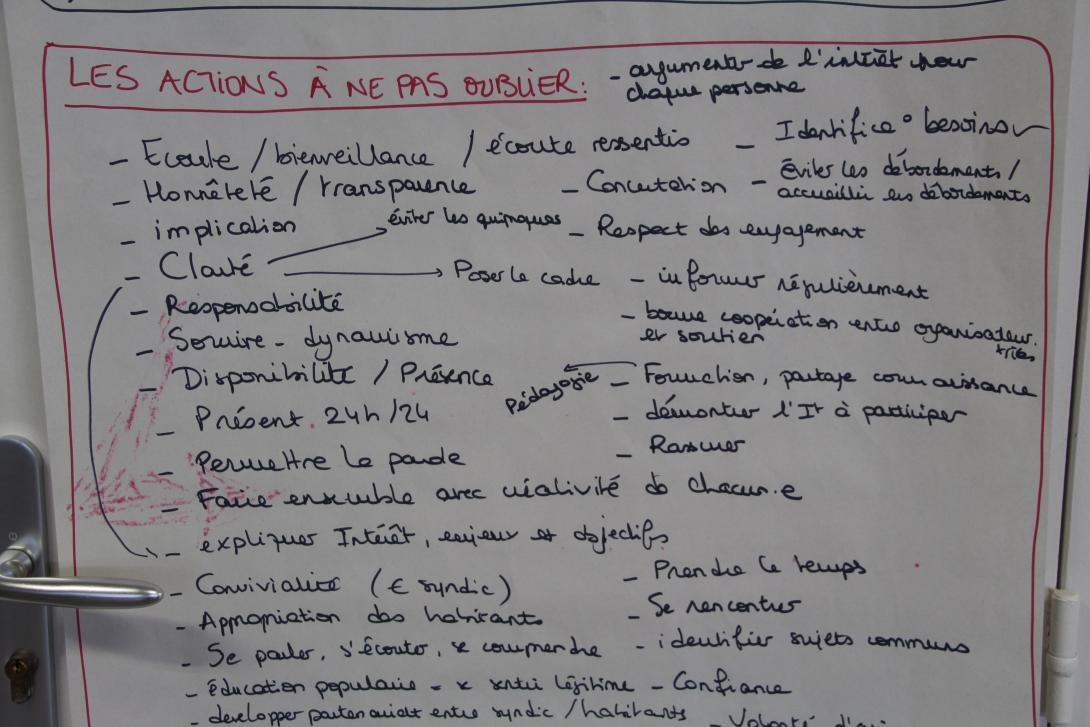 LES ACTIONS À NE PAS OUBLIER :
- argumenter de l'intérêt pour
chaque personne
- Ecoute / bienveillance / écoute ressentis
- Identific° besoins
- Honnêteté / transparence
- Concertation
- éviter les débordements /
accueillir les débordements
- implication
éviter les quiproques
- Respect des engagement
- Clarté
Poser le cadre
- informer régulièrement
- Responsabilité
- bonne coopération entre organisateur.
trices
et soutien
- Sourire - dynamisme
- Disponibilité / Présence
Pédagogie
- Formation, partage connaissance
- Présent 24h/24
- démontrer l'It à participer
- Permettre la parole
- Rassurer
- Faire ensemble avec créativité de chacun.e
- expliquer Intérêt, enjeux et objectifs
- Convivialité (€ syndic)
- Prendre le temps
- Appropriation des habitants
- Se rencontrer
- Se parler, s'écouter, se comprendre
- identifier sujets communs
- éducation populaire = se sentir légitime
- Confiance
- developper partenariat entre syndic / habitants
- Volonté